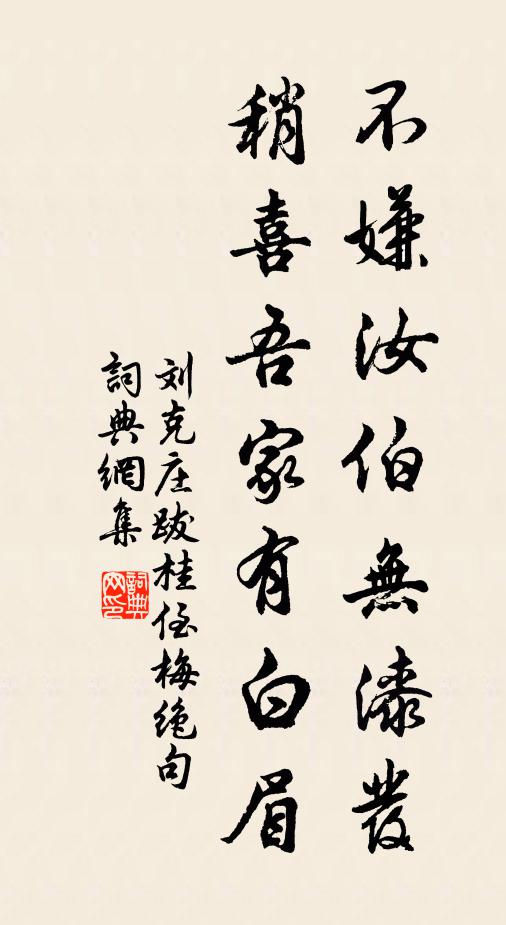 不嫌汝伯無漆發
稍喜吾家有白眉
刘克庄跋桂侄梅绝句
詞典網集
詞典网印